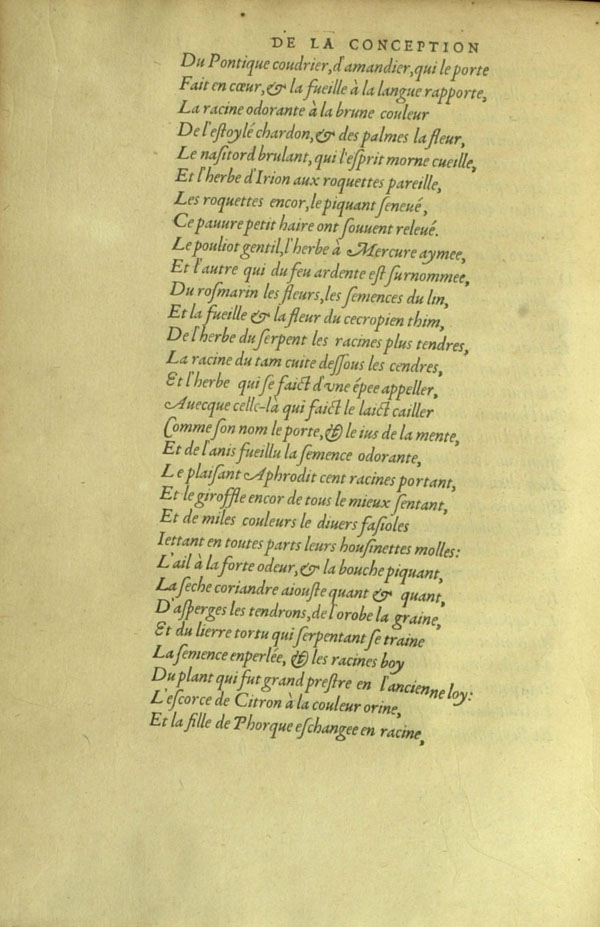 DE LA CONCEPTION
Du Pontique coudrier, d'amandier, qui le porte
Fait en cœur, & la fueille à la langue rapporte,
La racine odorante à la brune couleur
De l'eſtoylé chardon, & des palmes la fleur,
Le naſitord brulant, qui l'eſprit morne cueille,
Et l'herbe d'Irion aux roquettes pareille,
Les roquettes encor, le piquant ſeneué,
Ce pauure petit haire ont ſouuent releué.
Le pouliot gentil, l'herbe à Mercure aymee,
Et l'autre qui du feu ardente eſt ſurnommee,
Du roſmarin les fleurs, les ſemences du lin,
Et la fueille & la fleur du cecropien thim,
De l'herbe du ſerpent les racines plus tendres,
La racine du tam cuite deſſous les cendres,
Et l'herbe qui ſe faict d'vne épee appeller,
Auecque celle-là qui faict le laict cailler
Comme ſon nom le porte, & le ius de la mente,
Et de l'anis fueillu la ſemence odorante,
Le plaiſant Aphrodit cent racines portant,
Et le giroffle encor de tous le mieux ſentant,
Et de miles couleurs le diuers faſioles
Iettant en toutes parts leurs houſinettes molles:
L'ail à la forte odeur, & la bouche piquant,
La ſeche coriandre aiouſte quant & quant,
D'aſperges les tendrons, de l'orobe la graine,
Et du lierre tortu qui ſerpentant ſe traine
La ſemence enperlée, & les racines boy
Du plant qui fut grand preſtre en l'ancienne loy:
L'eſcorce de Citron à la couleur orine,
Et la fille de Phorque eſchangee en racine,